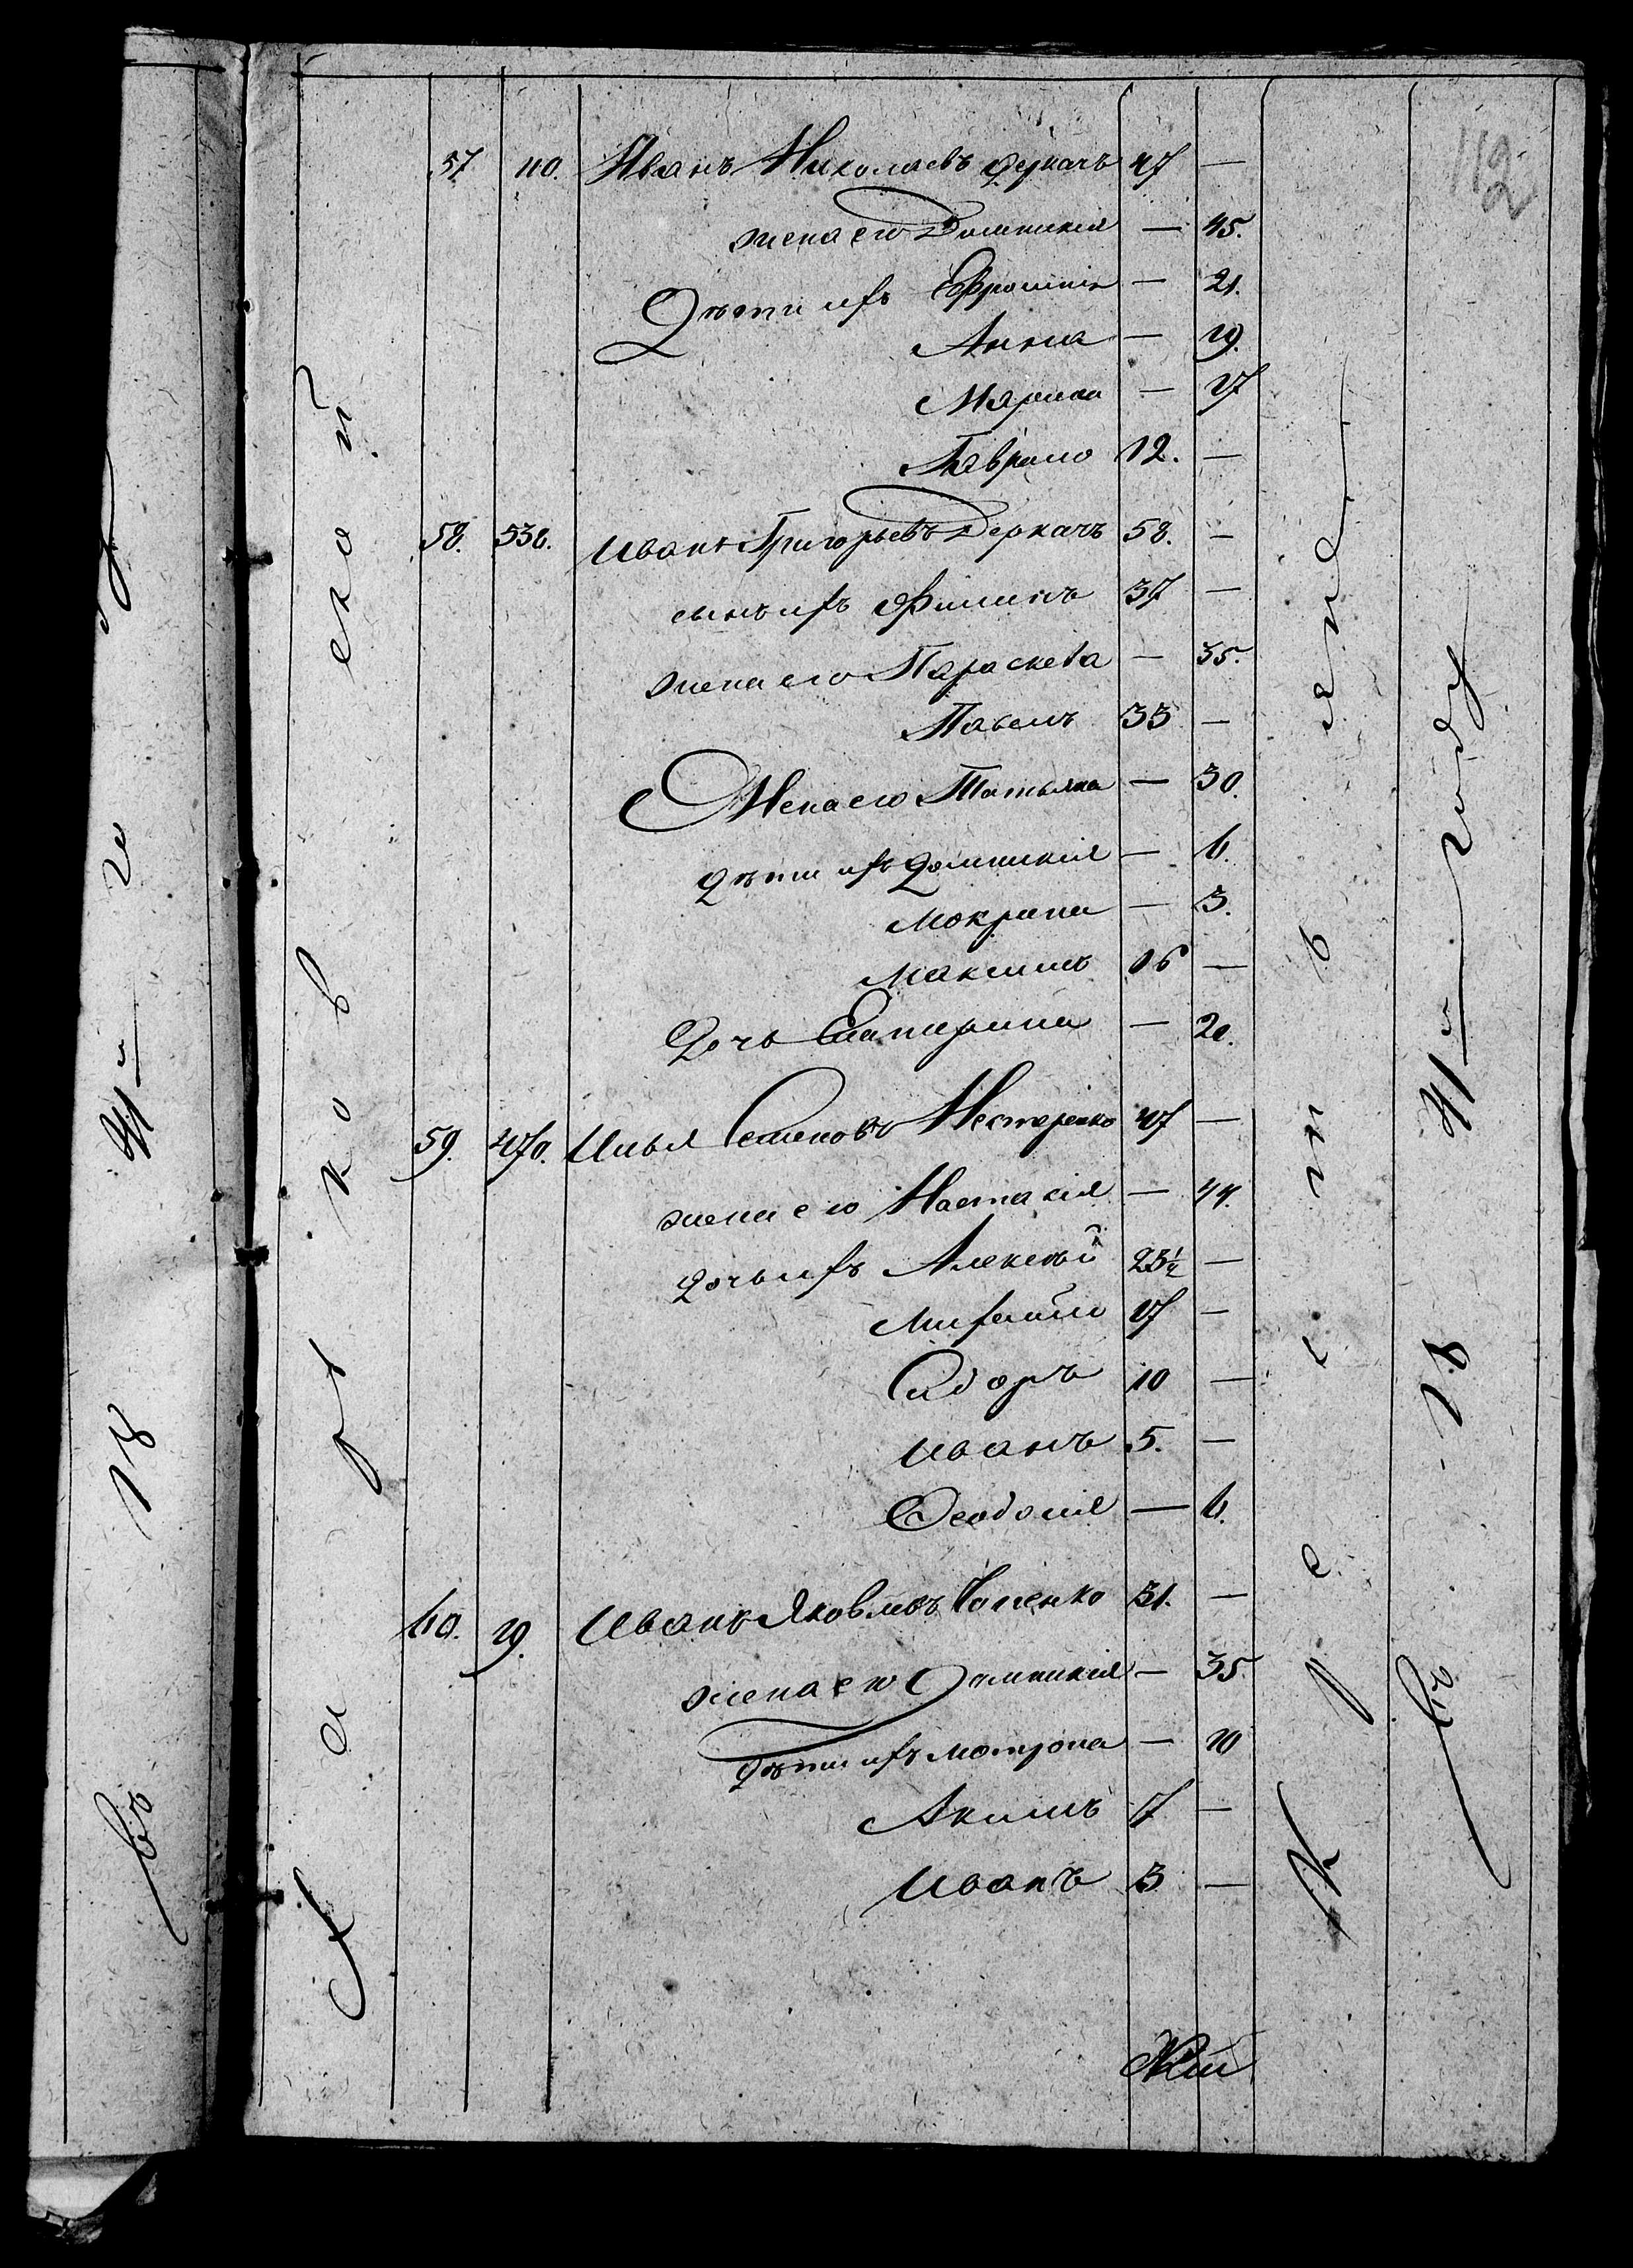 112
57. 110. Иванъ Николаевъ Деркачъ 47 —
жена его Домникія — 45.
Дѣти ихъ Ефросинія — 21.
Анна — 19.
Марина — 17
Гаврило 12. —
58. 538. Иванъ Григорьевъ Деркачъ 58. —
сынъ ихъ Филипъ 37 —
жена его Параскева — 35.
Павелъ 33 —
Жена его Татьяна — 30.
дѣти ихъ Домникія — 6.
Мокрина — 3.
Максимъ 16 —
Дочь Екатерина — 20.
59. 470. Илья Семеновъ Нестеренко 47 —
жена его Настасія — 44.
дочь ихъ Алексѣй 23½ —
Михайло 17 —
Сидоръ 10 —
Иванъ 5. —
Феодосія — 6.
60. 19. Иванъ Яковлевъ 31. —
жена его Домникія — 35.
дѣти ихъ Мотрона — 10
Акимъ 7 —
Иванъ 3 —
Харьковской
Крестьяне
въ 18 41 м году
въ 18 41 м го